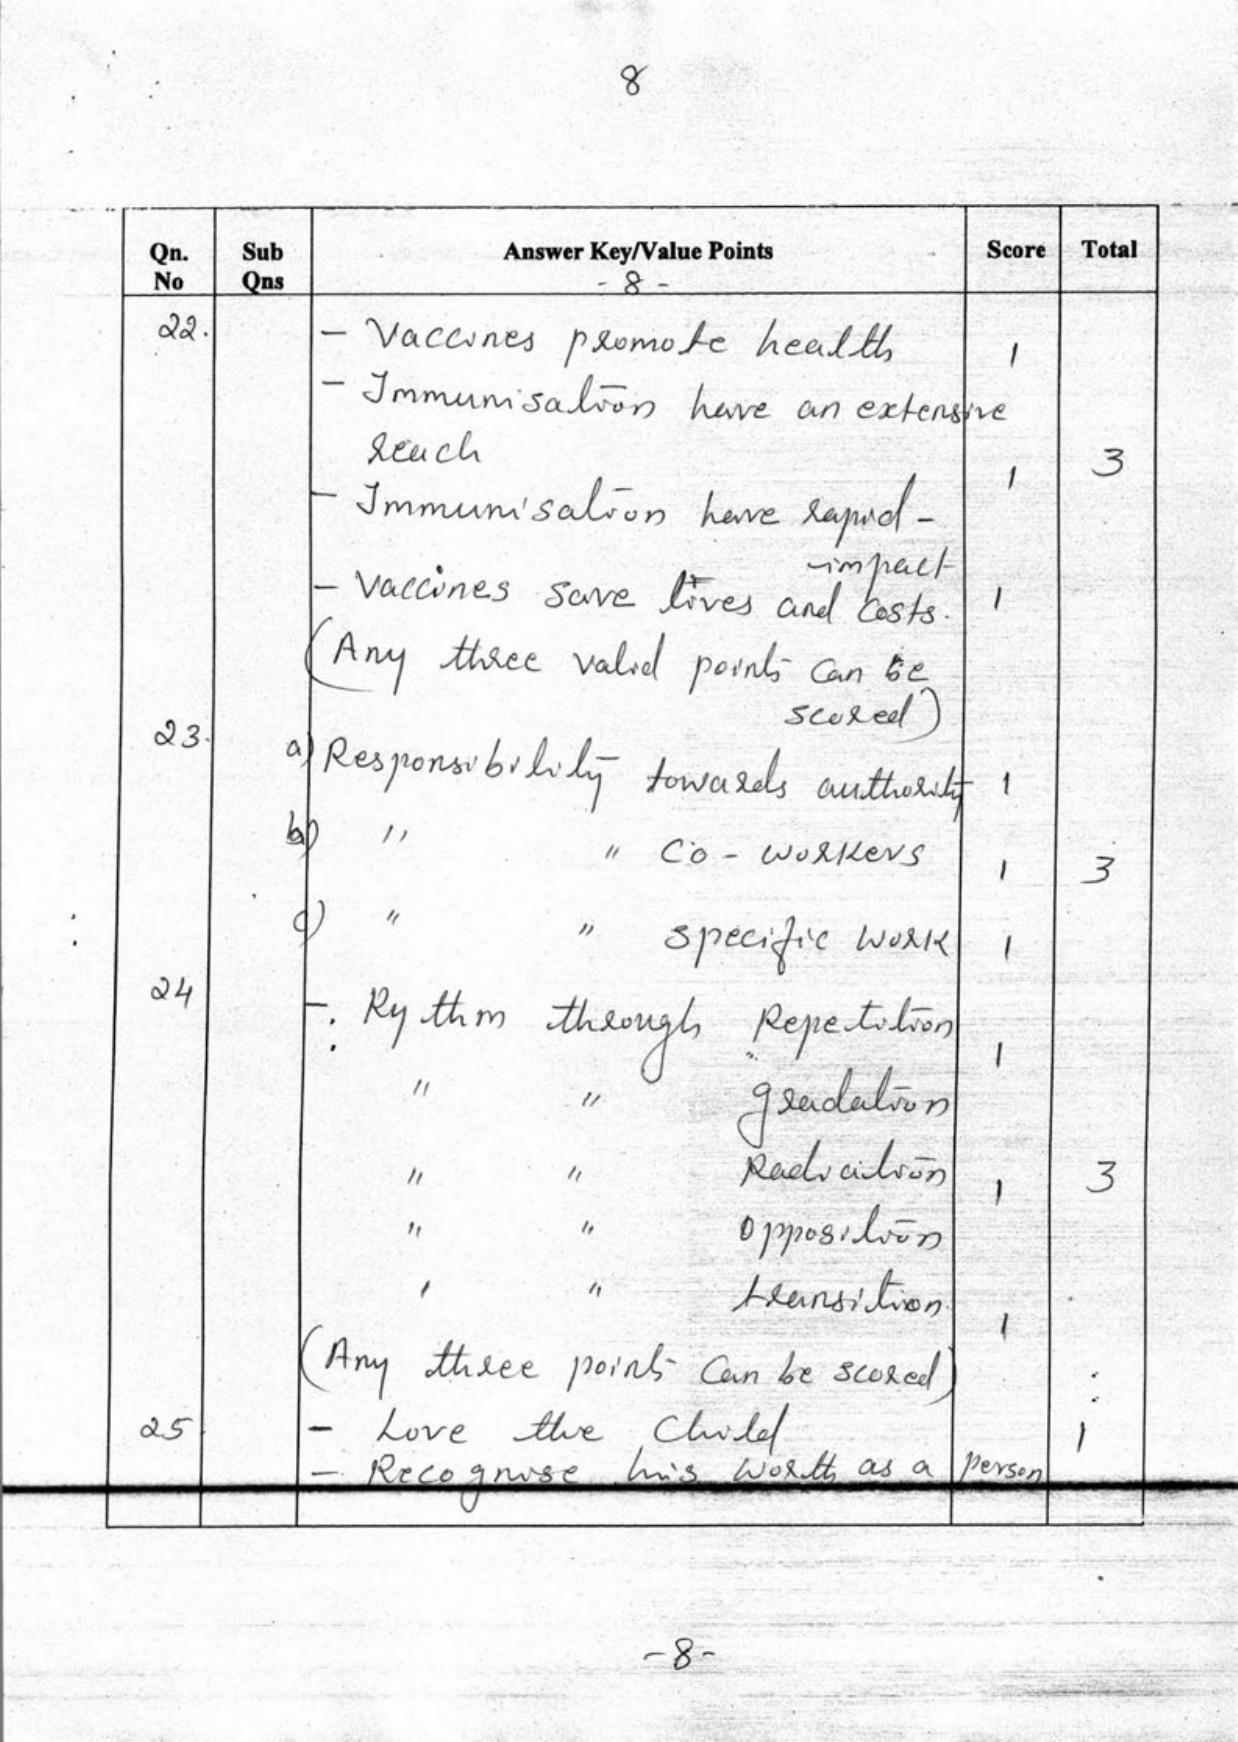 8
Qn. No Sub Qns Answer Key/Value Points Score Total
- 8 -
22. - Vaccines promote health 1
- Immunisation have an extensive
reach 1 3
- Immunisation have rapid -
impact
- Vaccines save lives and costs. 1
(Any three valid points can be
scored)
23. a) Responsibility towards authority 1
b) " " Co - workers 1 3
c) " " specific work 1
24 - Rythm through Repetition 1
" " gradation
" " Radiation 1 3
" " opposition
' " transition 1
(Any three points can be scored)
25 - Love the Child 1
- Recognise his worth as a person
-8-